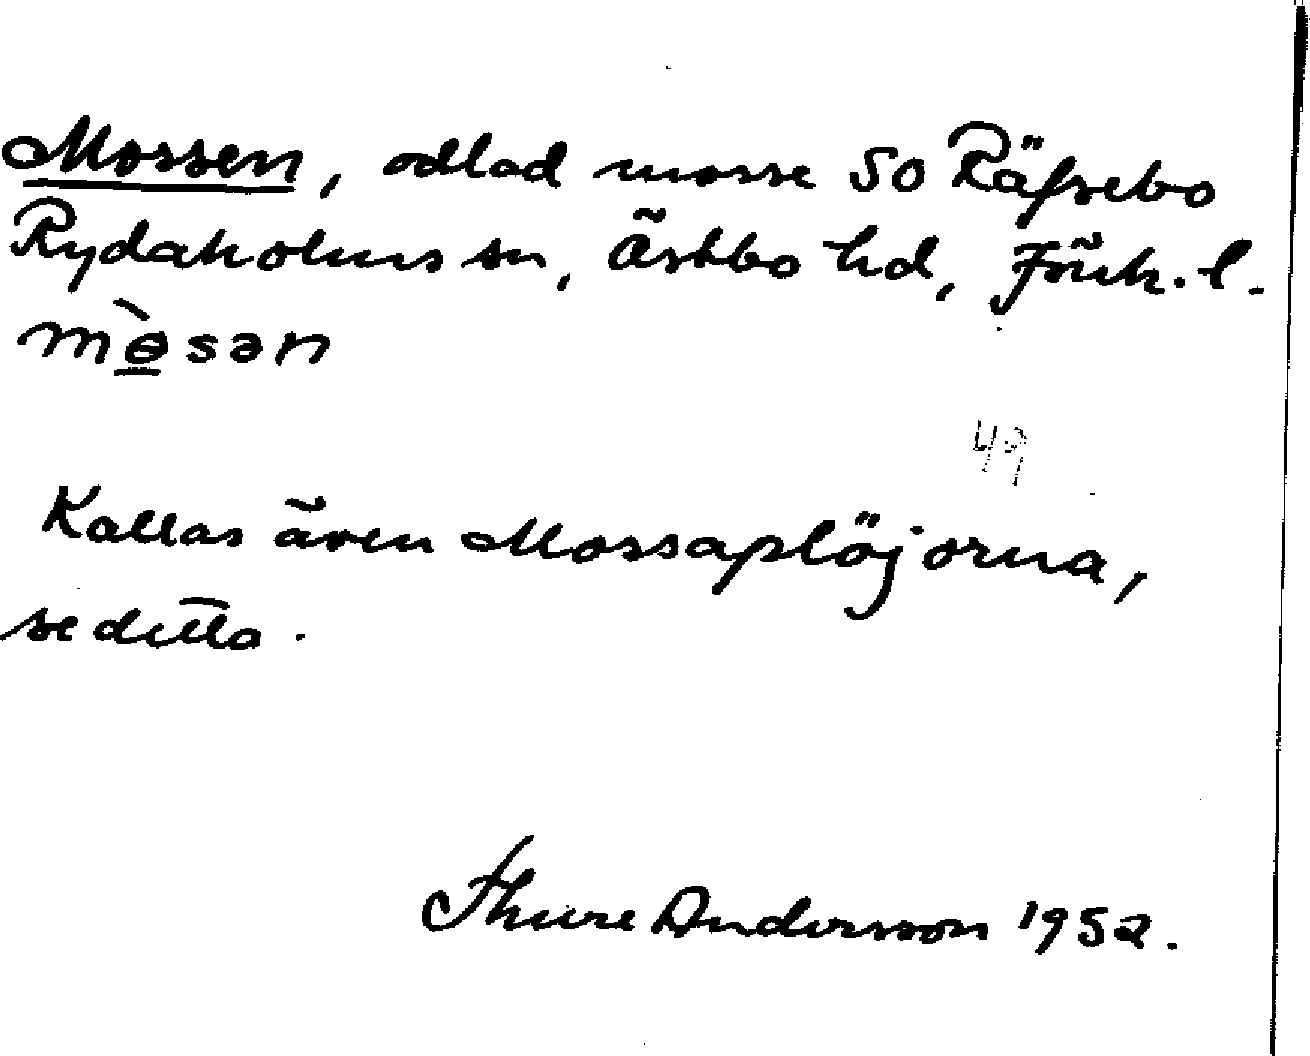 Mossen, odlad mosse SO Räfsebo
Rydaholms sn, Östbo hd, Jönk. l.
mɵ̀sən
49
Kallas även Mossaplöjorna,
se detta.
Thure Andersson 1952.